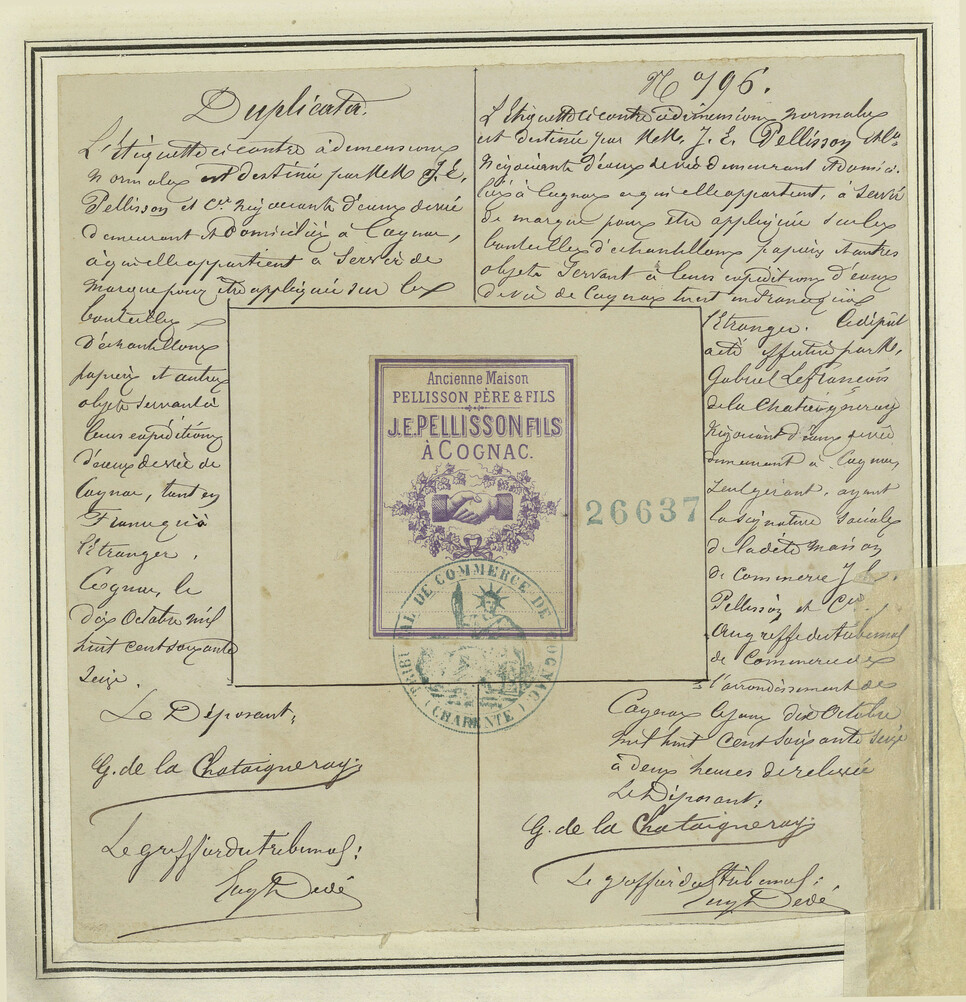 Duplicata.
L'Etiquette ci contre à dimensions
normales est destinée par MM. J. E.
Pellisson et Cie Négociants d'eaux de vie
demeurant et domiciliés à Cognac,
à qui elle appartient à Servir de
marque pour être appliquée sur les
bouteilles
d'échantillons
papiers et autres
objets servant à
leurs expéditions
d'eaux de vie de
Cognac, tant en
France qu'à
l'étranger.
Cognac, le
dix Octobre mil
huit cent soixante
seize.
Le Déposant,
G. de la Chataigneray
Le greffier du tribunal:
Dedé
No 796.
L'Etiquette ci contre à dimensions normales
est destinée par MM. J. E. Pellisson et Cie
Négociants d'eaux de vie demeurant et domici-
liés à Cognac et qui elle appartient, à Servir
de marque pour être appliquée sur les
bouteilles d'échantillons papiers et autres
objets Servant à leurs expéditions d'eaux
de vie de Cognac tant en France qu'à
l'Etranger. Le dépôt
a été effectué par M.
Gabriel LeFrançois
de la Chataigneray
Négociant d'eaux de vie
demeurant à Cognac,
seul gérant, ayant
la signature sociale
de ladite maison
de commerce J. E.
Pellisson et Cie.
Au greffe du tribunal
de Commerce de
l'arrondissement de
Cognac le jour dix Octobre
mil huit cent soixante seize
à deux heures de relevée
Le Déposant:
G. de la Chataigneray
Le greffier du tribunal:
Dedé
Ancienne Maison
PELLISSON PÈRE & FILS
J.E. PELLISSON FILS
À COGNAC.
26637
TRIBUNAL DE COMMERCE DE COGNAC
(CHARENTE)